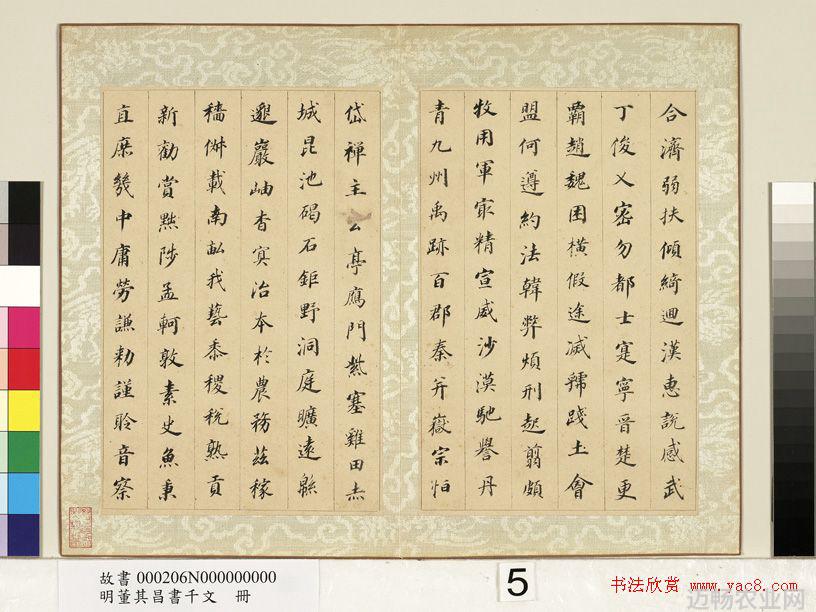 合濟弱扶傾綺迴漢惠說感武
丁俊乂密勿都士寔寧晉楚更
霸趙魏困橫假途滅虢踐土會
盟何遵約法韓弊煩刑起翦頗
牧用軍最精宣威沙漠馳譽丹
青九州禹跡百郡秦并嶽宗恒
岱禪主云亭鴈門紫塞雞田赤
城昆池碣石鉅野洞庭曠遠緜
邈巖岫杳冥治本於農務茲稼
穡俶載南畝我藝黍稷稅熟貢
新勸賞黜陟孟軻敦素史魚秉
直庶幾中庸勞謙勑謹聆音察
故書 000206N000000000
明董其昌書千文 冊
5
书法欣赏 www.yac8.com
迈畅农业网